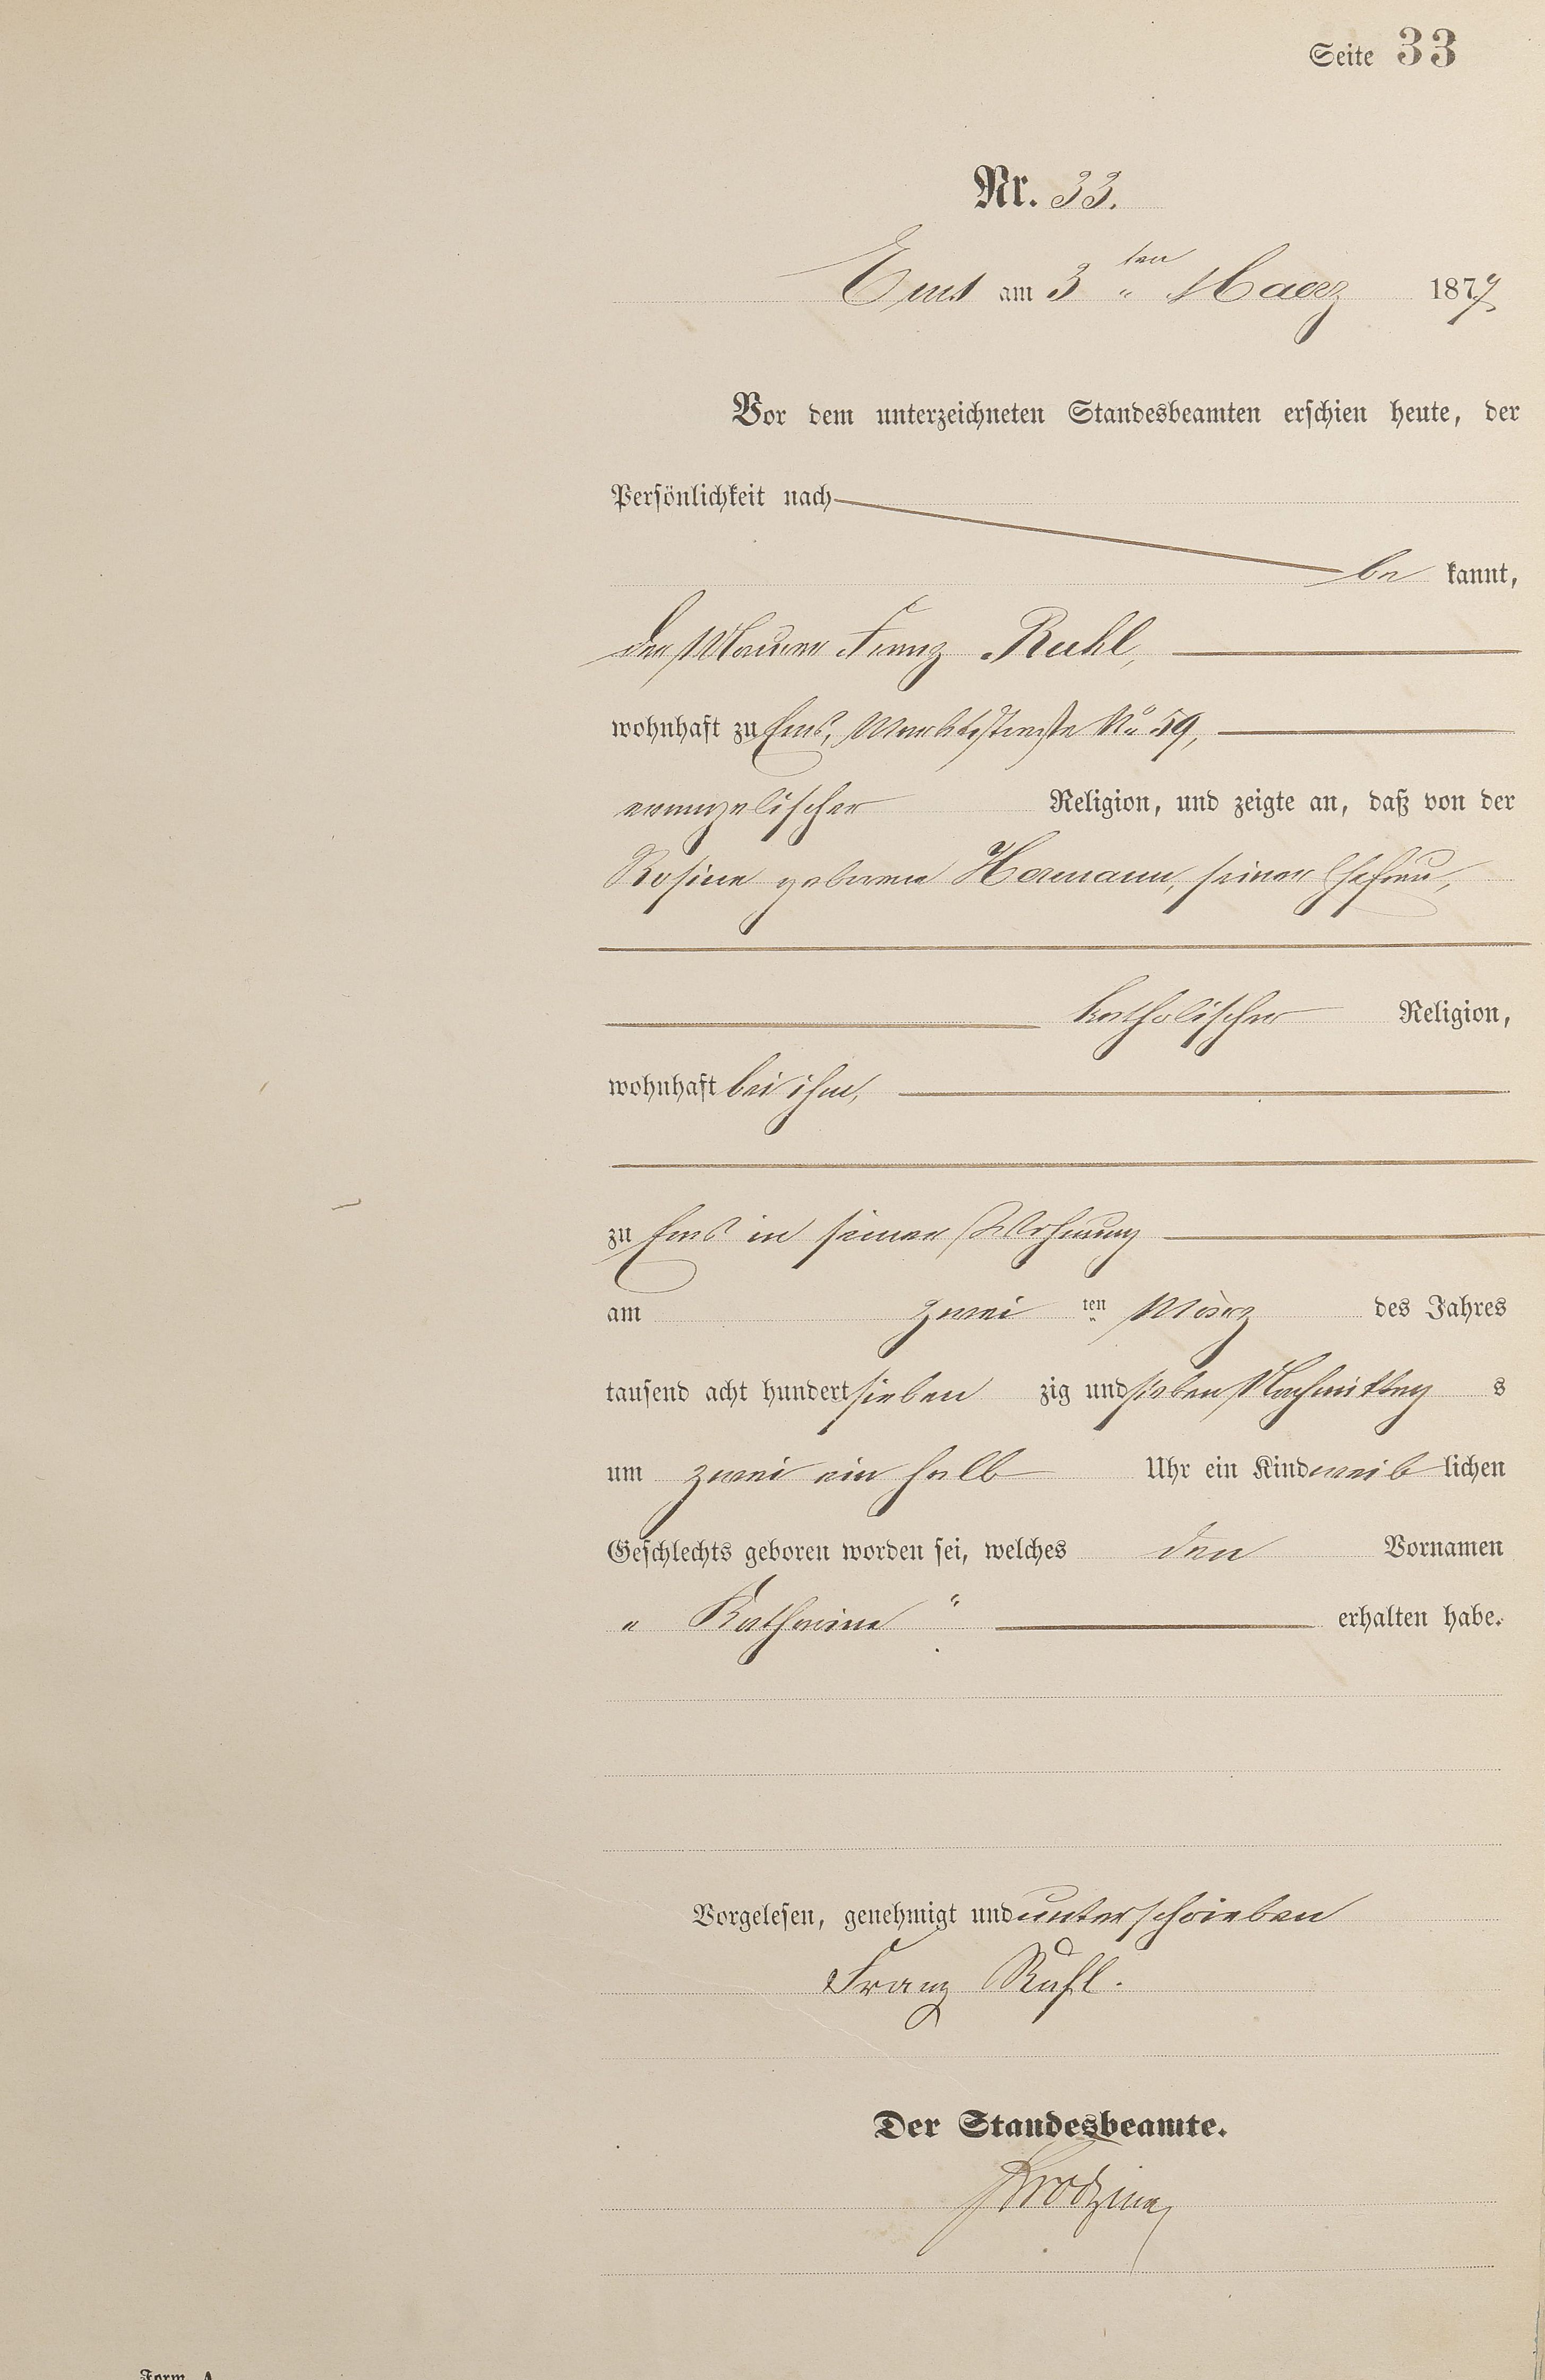 Seite 33
Nr. 33.
Ems am 3ten Maerz 1877.
Vor dem unterzeichneten Standesbeamten erschien heute, der
Persönlichkeit nach
be kannt,
der Maurer Franz Ruhl,
wohnhaft zu Ems, Marktstraße No 59,
evangelischer Religion, und zeigte an, daß von der
Rosine geborene Hermann, seiner Ehefrau,
katholischer Religion,
wohnhaft bei ihm,
zu Ems in seiner Wohnung
am zwei ten März des Jahres
tausend acht hundert sieben zig und sieben Nachmittag s
um zwei ein halb Uhr ein Kind weib lichen
Geschlechts geboren worden sei, welches den Vornamen
" Katharina " erhalten habe.
Vorgelesen, genehmigt und unterschrieben
Franz Ruhl.
Der Standesbeamte.
Form. A